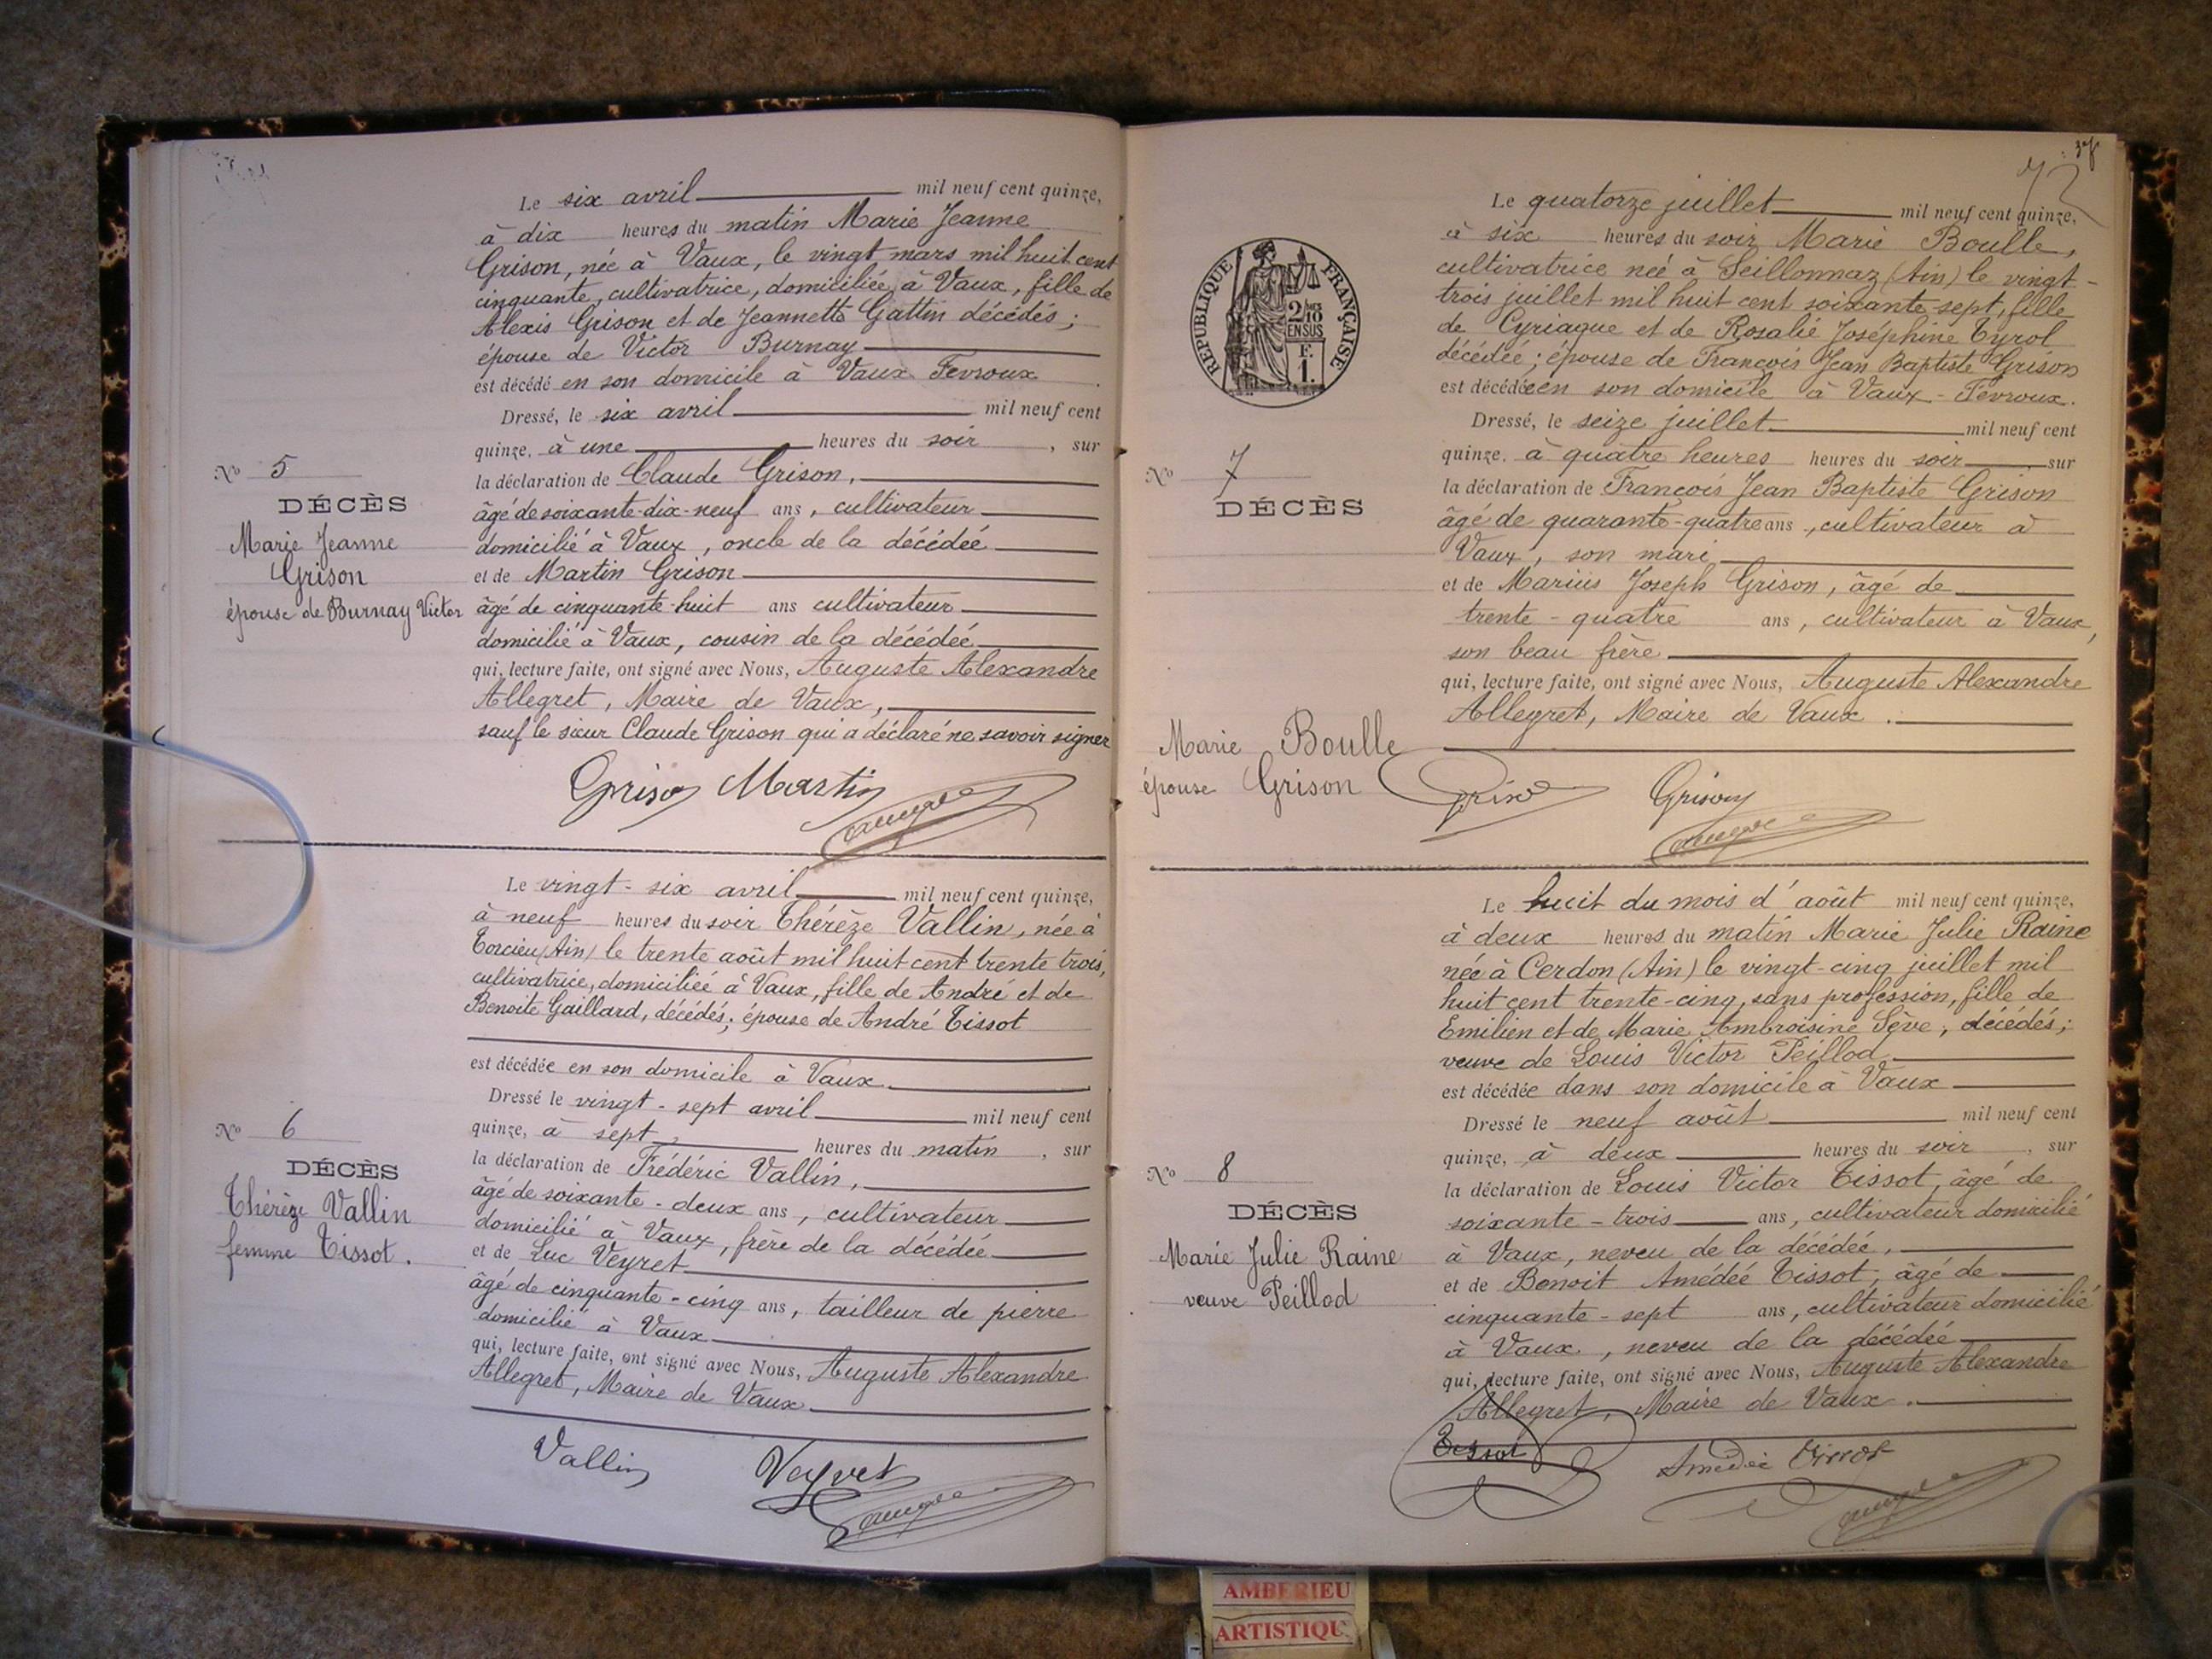 Le six avril mil neuf cent quinze,
à dix heures du matin Marie Jeanne
Grison, née à Vaux, le vingt mars mil huit cent
cinquante, cultivatrice, domiciliée à Vaux, fille de
Alexis Grison et de Jeannette Gattin décédés ;
épouse de Victor Burnay
est décédé en son domicile à Vaux Fevroux
Dressé, le six avril mil neuf cent
quinze, à une heures du soir, sur
la déclaration de Claude Grison,
âgé de soixante-dix-neuf ans, cultivateur
domicilié à Vaux, oncle de la décédée
et de Martin Grison
âgé de cinquante-huit ans cultivateur
domicilié à Vaux, cousin de la décédée
qui, lecture faite, ont signé avec Nous, Auguste Alexandre
Allegret, Maire de Vaux,
sauf le sieur Claude Grison qui a déclaré ne savoir signer
Grison Martin
No 5
DÉCÈS
Marie Jeanne
Grison
épouse de Burnay Victor
Le vingt-six avril mil neuf cent quinze,
à neuf heures du soir Thérèze Vallin, née à
Torcieu (Ain) le trente août mil huit cent trente trois,
cultivatrice, domiciliée à Vaux, fille de André et de
Benoite Gaillard, décédés ; épouse de André Tissot
est décédée en son domicile à Vaux
Dressé le vingt-sept avril mil neuf cent
quinze, à sept heures du matin, sur
la déclaration de Frédéric Vallin,
âgé de soixante-deux ans, cultivateur
domicilié à Vaux, frère de la décédée
et de Luc Veyret
âgé de cinquante-cinq ans, tailleur de pierre
domicilié à Vaux
qui, lecture faite, ont signé avec Nous, Auguste Alexandre
Allegret, Maire de Vaux
Vallin Veyret
No 6
DÉCÈS
Thérèze Vallin
femme Tissot.
RÉPUBLIQUE FRANÇAISE
2/10 EN SUS
F. 1.
Le quatorze juillet mil neuf cent quinze,
à six heures du soir Marie Boulle,
cultivatrice née à Seillonnaz (Ain) le vingt-
trois juillet mil huit cent soixante-sept, fille
de Cyriaque et de Rosalie Joséphine Tyrol
décédée ; épouse de François Jean Baptiste Grison
est décédée en son domicile à Vaux-Fevroux.
Dressé, le seize juillet mil neuf cent
quinze. à quatre heures heures du soir sur
la déclaration de François Jean Baptiste Grison
âgé de quarante-quatre ans, cultivateur à
Vaux, son mari
et de Marius Joseph Grison, âgé de
trente-quatre ans, cultivateur à Vaux,
son beau frère
qui, lecture faite, ont signé avec Nous, Auguste Alexandre
Allegret, Maire de Vaux.
Grison Grison
No 7
DÉCÈS
Marie Boulle
épouse Grison
Le huit du mois d'août mil neuf cent quinze,
à deux heures du matin Marie Julie Raine
née à Cerdon (Ain) le vingt-cinq juillet mil
huit cent trente-cinq, sans profession, fille de
Emilien et de Marie Ambroisine Sève, décédés ;
veuve de Louis Victor Peillod
est décédée dans son domicile à Vaux
Dressé le neuf août mil neuf cent
quinze, à deux heures du soir, sur
la déclaration de Louis Victor Tissot, âgé de
soixante-trois ans, cultivateur domicilié
à Vaux, neveu de la décédée,
et de Benoit Amédée Tissot, âgé de
cinquante-sept ans, cultivateur domicilié
à Vaux, neveu de la décédée
qui, lecture faite, ont signé avec Nous, Auguste Alexandre
Allegret, Maire de Vaux.
Tissot Amédée Tissot
No 8
DÉCÈS
Marie Julie Raine
veuve Peillod
AMBERIEU
ARTISTIQU